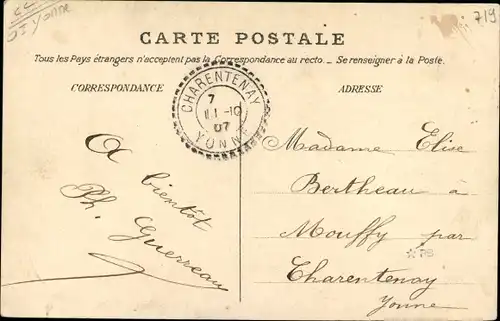 719
CARTE POSTALE
Tous les Pays étrangers n'acceptent pas la Correspondance au recto. – Se renseigner à la Poste.
CORRESPONDANCE
ADRESSE
CHARENTENAY
7
07
YONNE
A
bientôt
Ph. Guerreau
Madame Elise
Bertheau à
Mouffy par
Charentenay
Yonne